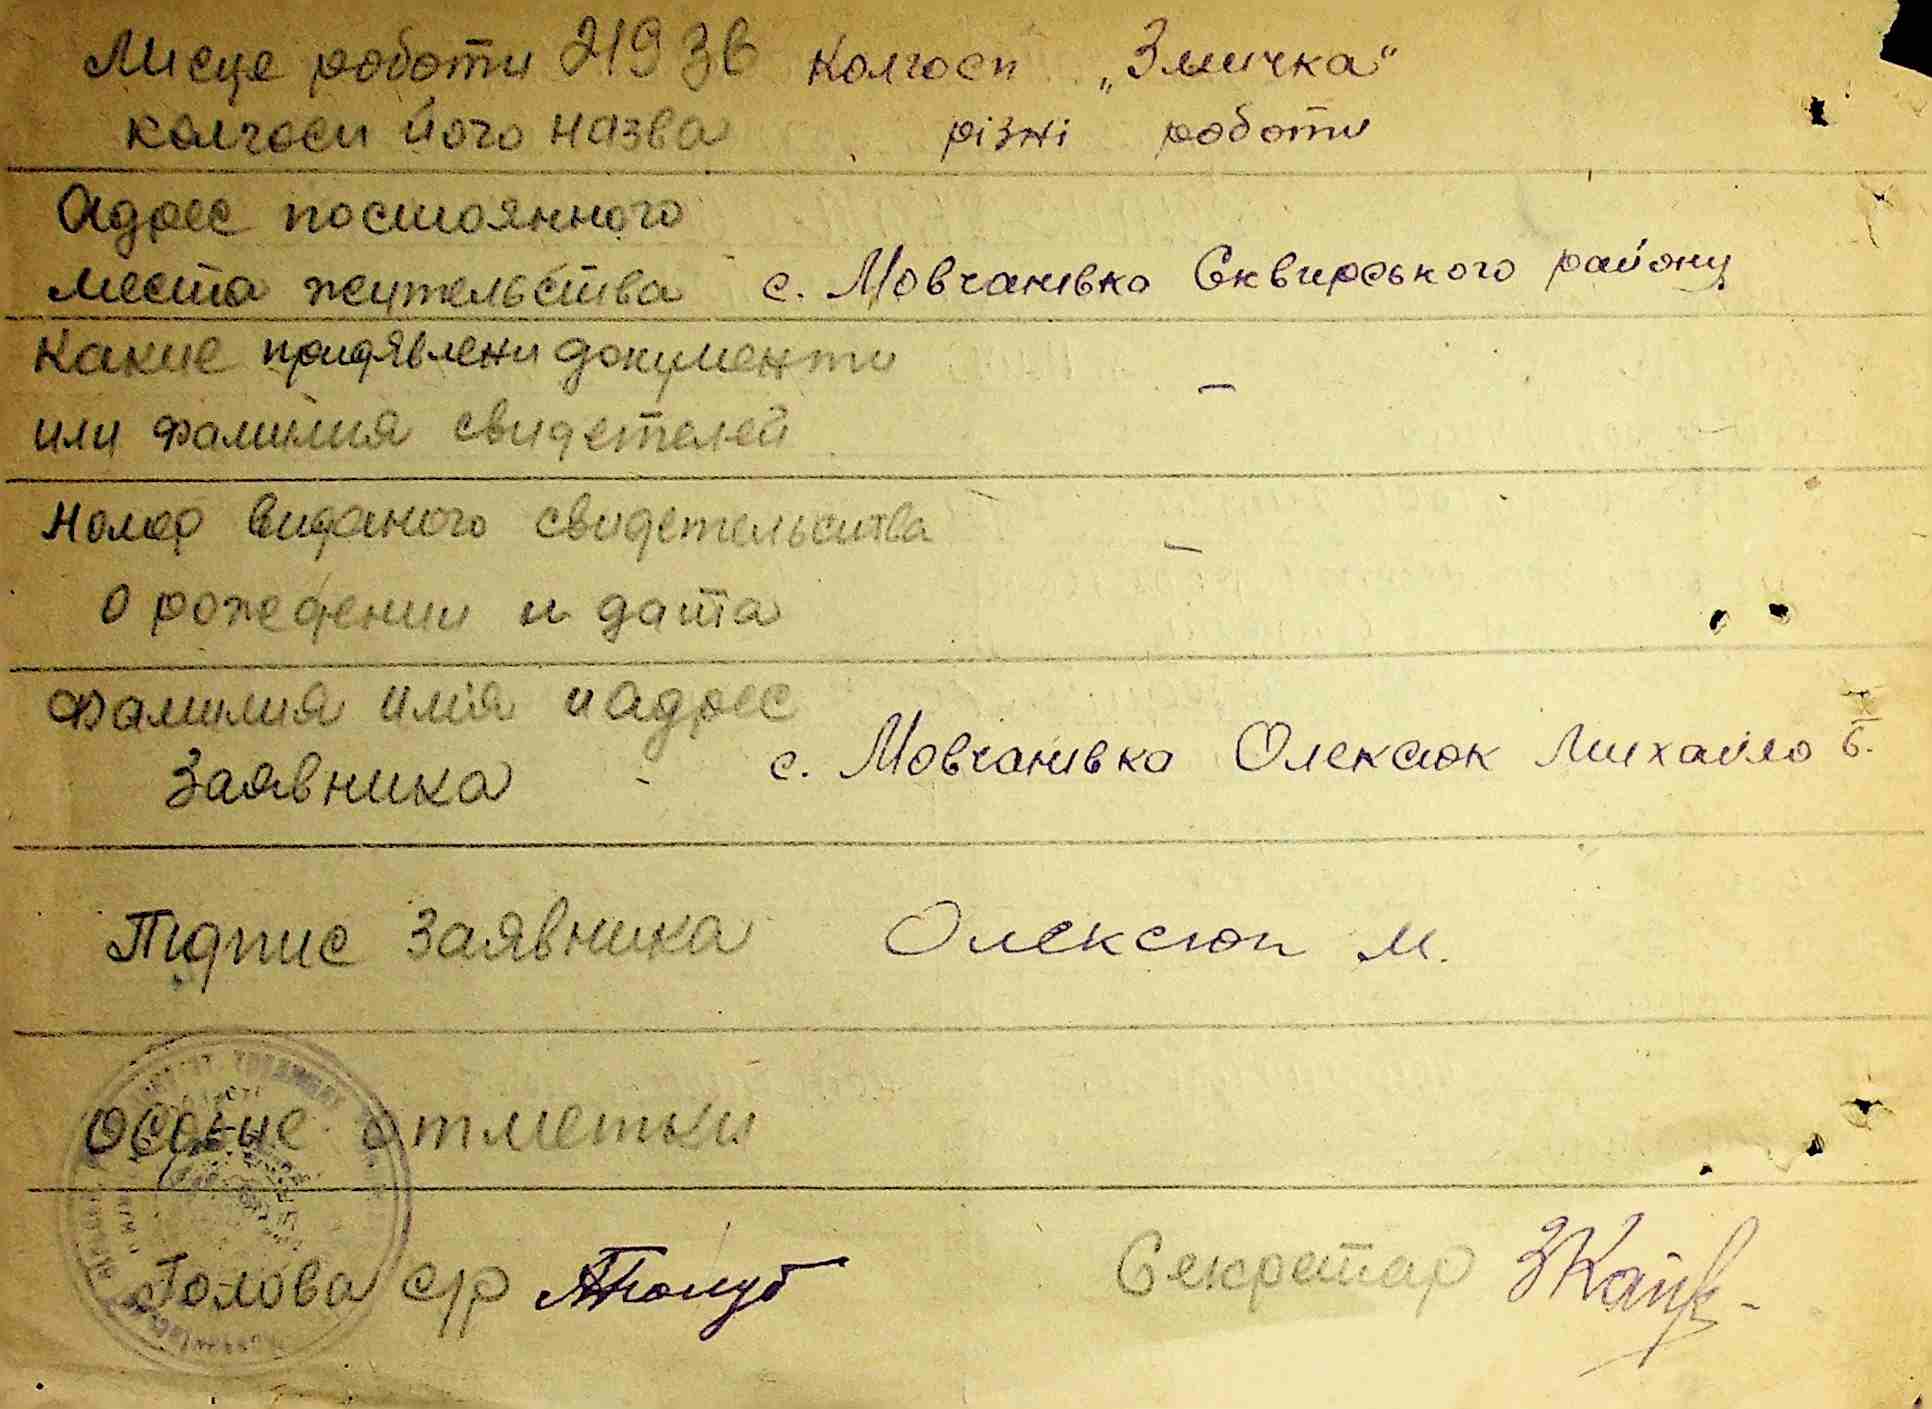 Мисце роботи 219 Зв Колгосп „Змичка“
колгосп його назва різні роботи
Адрес постоянного
места жутельства с. Мовчанивка Сквирського району
Какие придявлени документи
или фамилия свидетелей –
Номер виданого свидетельства –
о рождении и дата
Фамилия имя и адрес
Заявника с. Мовчанивка Олексюк Михайло Є.
Підпис Заявника Олексюк М.
Особые отметки
Голова с/р АГолуб Секретар